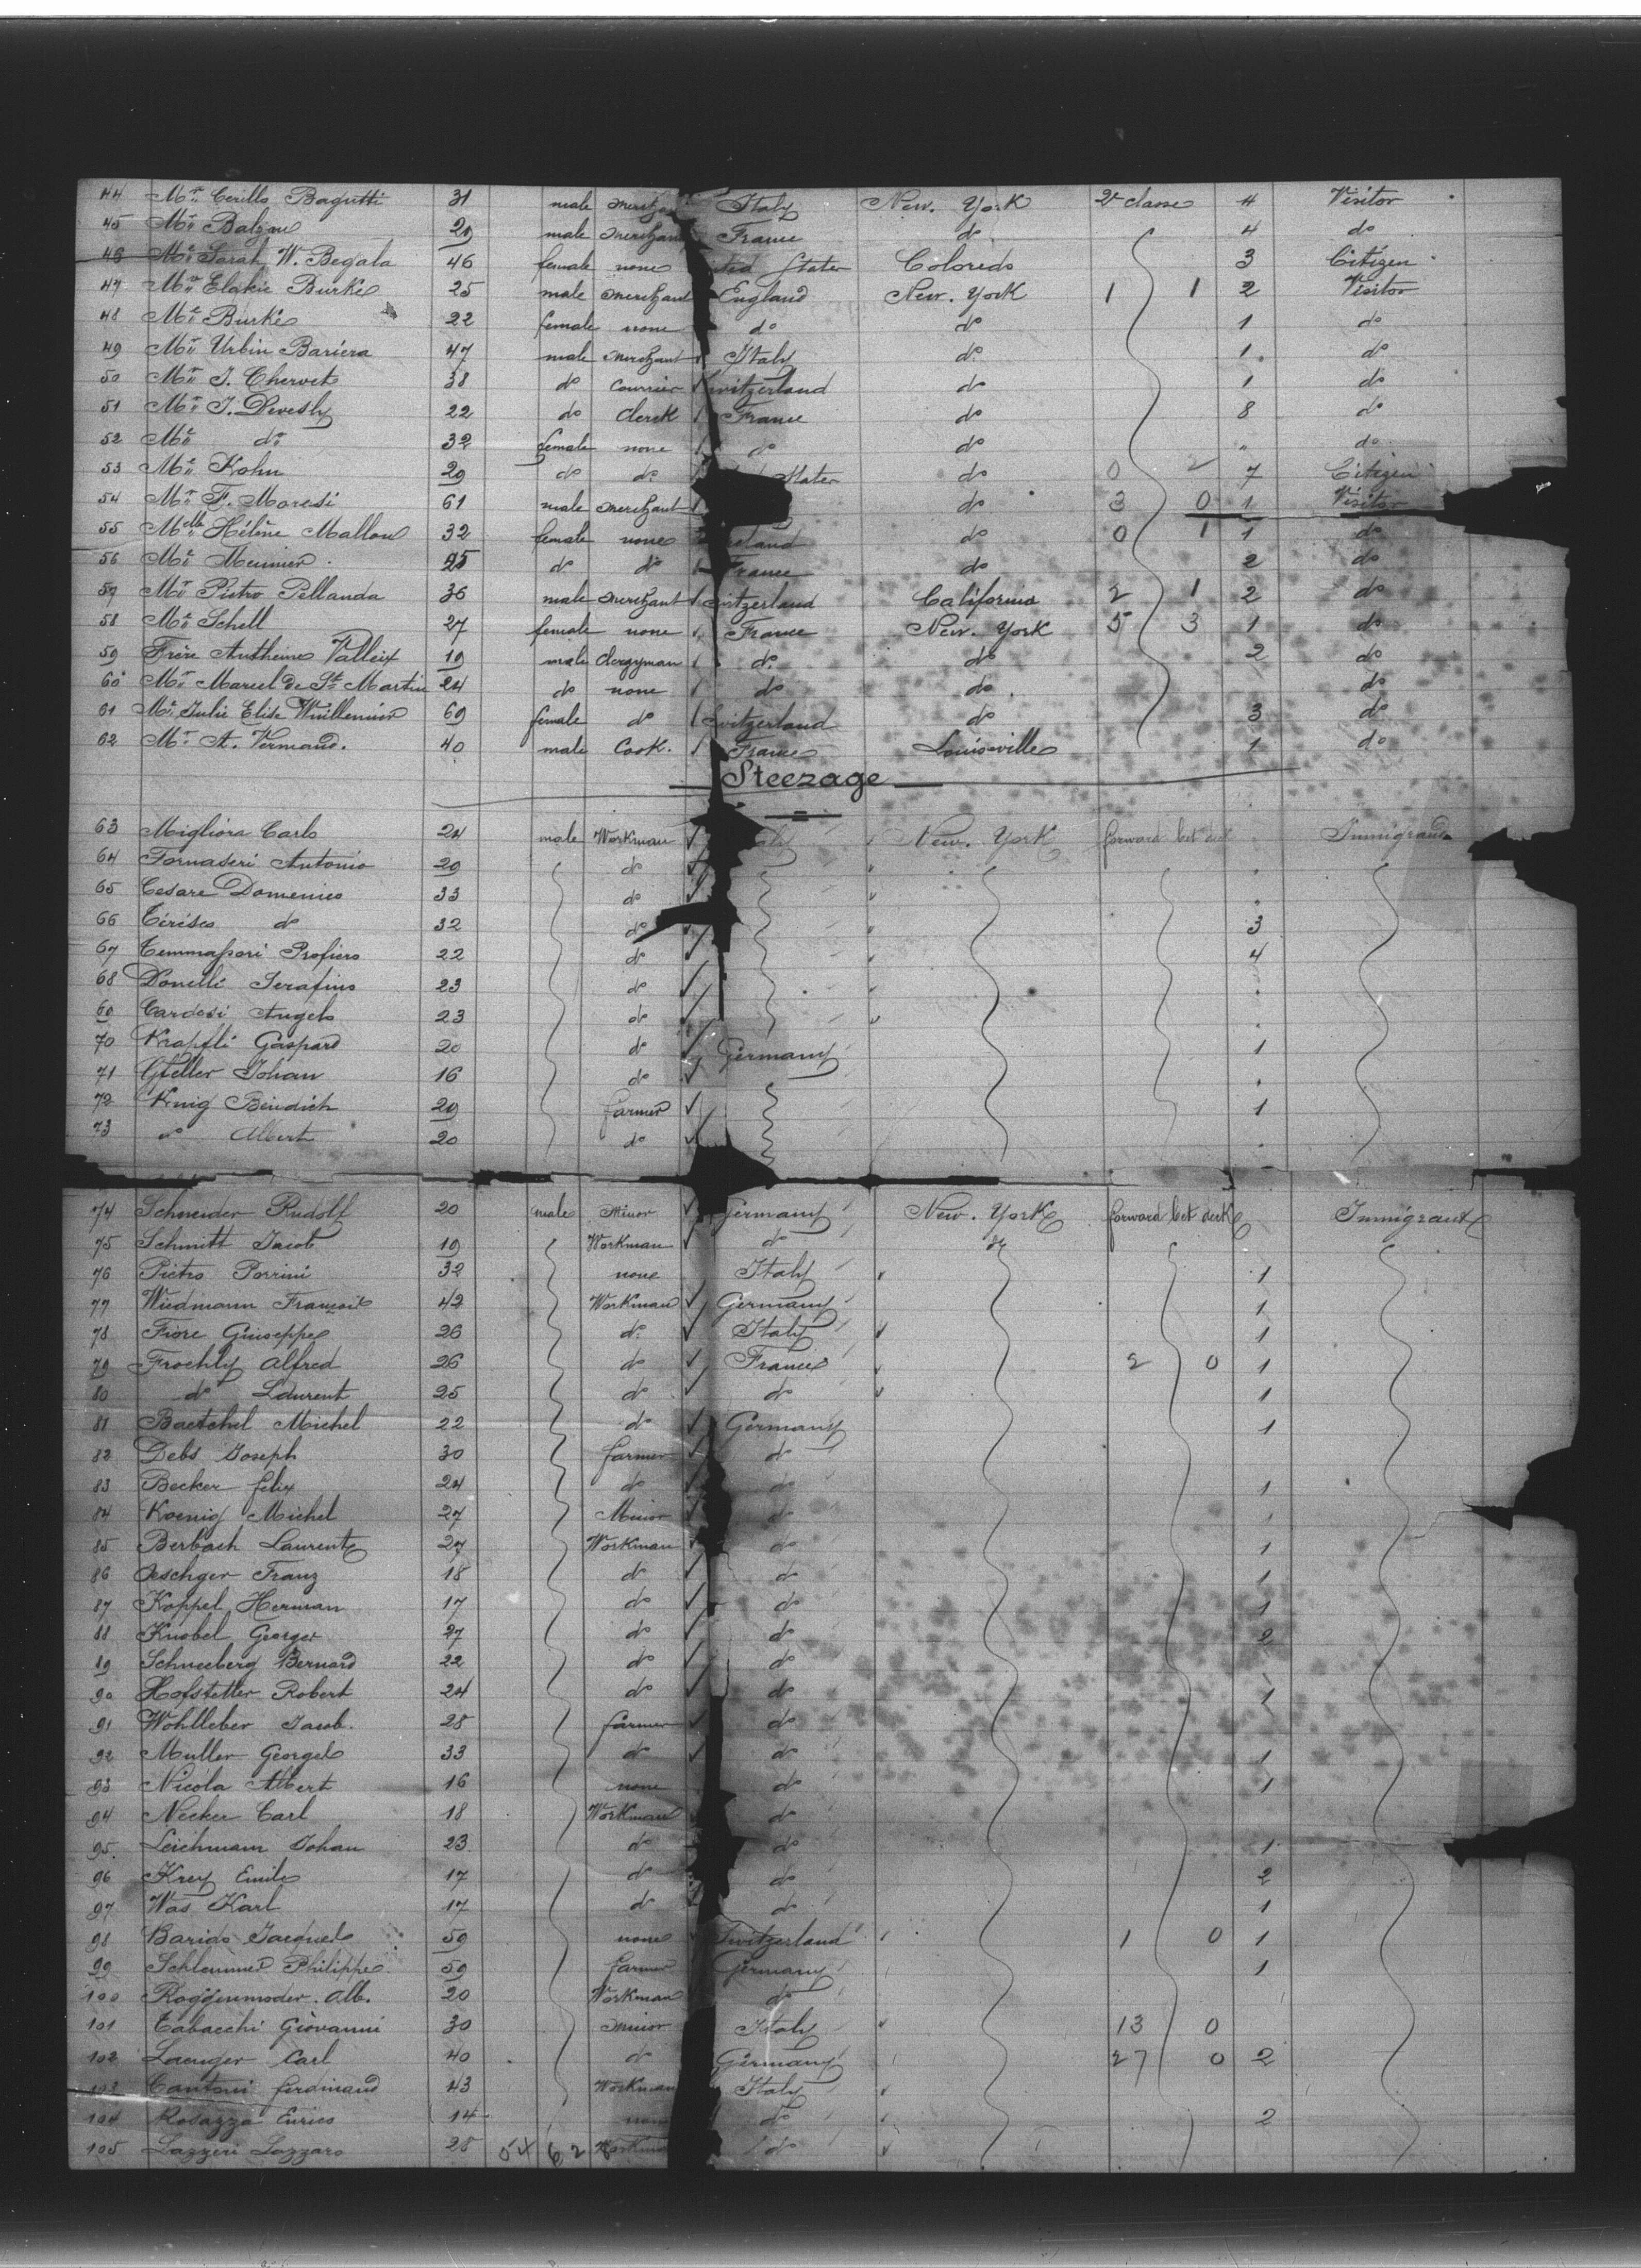 44 Mr. Cirillo Bagutti 31 male merchan Italy New. York 2e classe 4 Visitor
45 Mr. Balzan 29 male merchan France do 4 do
46 Me. Sarah W. Begala 46 female none ited States Colorado 3 Citizen
47 Mr. Elskie Burke 25 male merchant England New. York 1 1 2 Visitor
48 Me. Burke 22 female none do do 1 do
49 Mr. Urbin Bariera 47 male merchant Italy do 1 do
50 Mr. J. Chervet 38 do courrier witzerland do 1 do
51 Mr. J. Devesly 22 do Clerck France do 8 do
52 Me. do 32 female none do do " do
53 Me. Kohn 29 do do States do 0 2 7 Citizen
54 Mr. F. Moresi 61 male merchant do 3 0 1 Visitor
55 Melle Hélène Mallon 32 female none reland do 0 1 1 do
56 Me. Meunier 25 do do France do 2 do
57 Mr. Pietro Pellanda 36 male merchant witzerland California 2 1 2 do
58 Me. Schell 27 female none France New. York 5 3 1 do
59 Frère Anthime Valleix 19 male Clergyman do do 2 do
60 Mr. Marcel de St. Martin 24 do none do do do
61 Me. Julie Elise Wuillemier 69 female do Switzerland do 3 do
62 Mr. A. Vermand. 40 male Cook. France Louisville 1 do
Steezage
63 Migliora Carlo 24 male Workman New. York forward bet deck Immigrand
64 Fornaseri Antonio 29 do
65 Cesare Domenico 33 do
66 Térésa do 32 do 3
67 Temmassori Profiero 22 do 4
68 Donelli Serafino 23 do
69 Cardosi Angelo 23 do
70 Krapfli Gaspard 20 do Germany 1
71 Gfeller Johan 16 do
72 Knig Bendich 29 farmer 1
73 do Albert 20 do
74 Schneider Rudolf 20 male Minor Germany New. York forward bet deck Immigrant
75 Schmitt Jacob 19 Workman do do
76 Pietro Porrini 32 none Italy 1
77 Wiedmann François 42 Workman Germany 1
78 Fiore Giuseppe 26 do Italy 1
79 Froehly Alfred 26 do France 2 0 1
80 do Laurent 25 do do 1
81 Baetchel Michel 22 do Germany 1
82 Debs Joseph 30 farmer do
83 Becker felix 24 do do 1
84 Koenig Michel 27 Minor do 1
85 Berbach Laurent 27 Workman do 1
86 Aeschger Franz 18 do do 1
87 Koppel Herman 17 do do 1
88 Knobel George 27 do do 2
89 Schneeberg Bernard 22 do do
90 Hofstetter Robert 24 do do 1
91 Wohlleber Jacob. 28 farmer do
92 Muller George 33 do do 1
93 Nicola Albert 16 none do 1
94 Necker Carl 18 Workman do
95. Leichmann Johan 23 do do 1
96 Krey Emile 17 do do 2
97 Was Karl 17 do do 1
98 Barido Jacques 59 none Switzerland 1 0 1
99 Schlemmer Philippe 59 farmer Germany 1
100 Roggenmoder. Alb. 20 Workman do
101 Tabacchi Giovanni 30 minor Italy 13 0
102 Laenger Carl 40 do Germany 27 0 2
103 Cantoni ferdinand 43 Workman Italy
104 Rosazza Enrico 14 none do 2
105 Lazzeri Lazzaro 28 54 62 Workman do